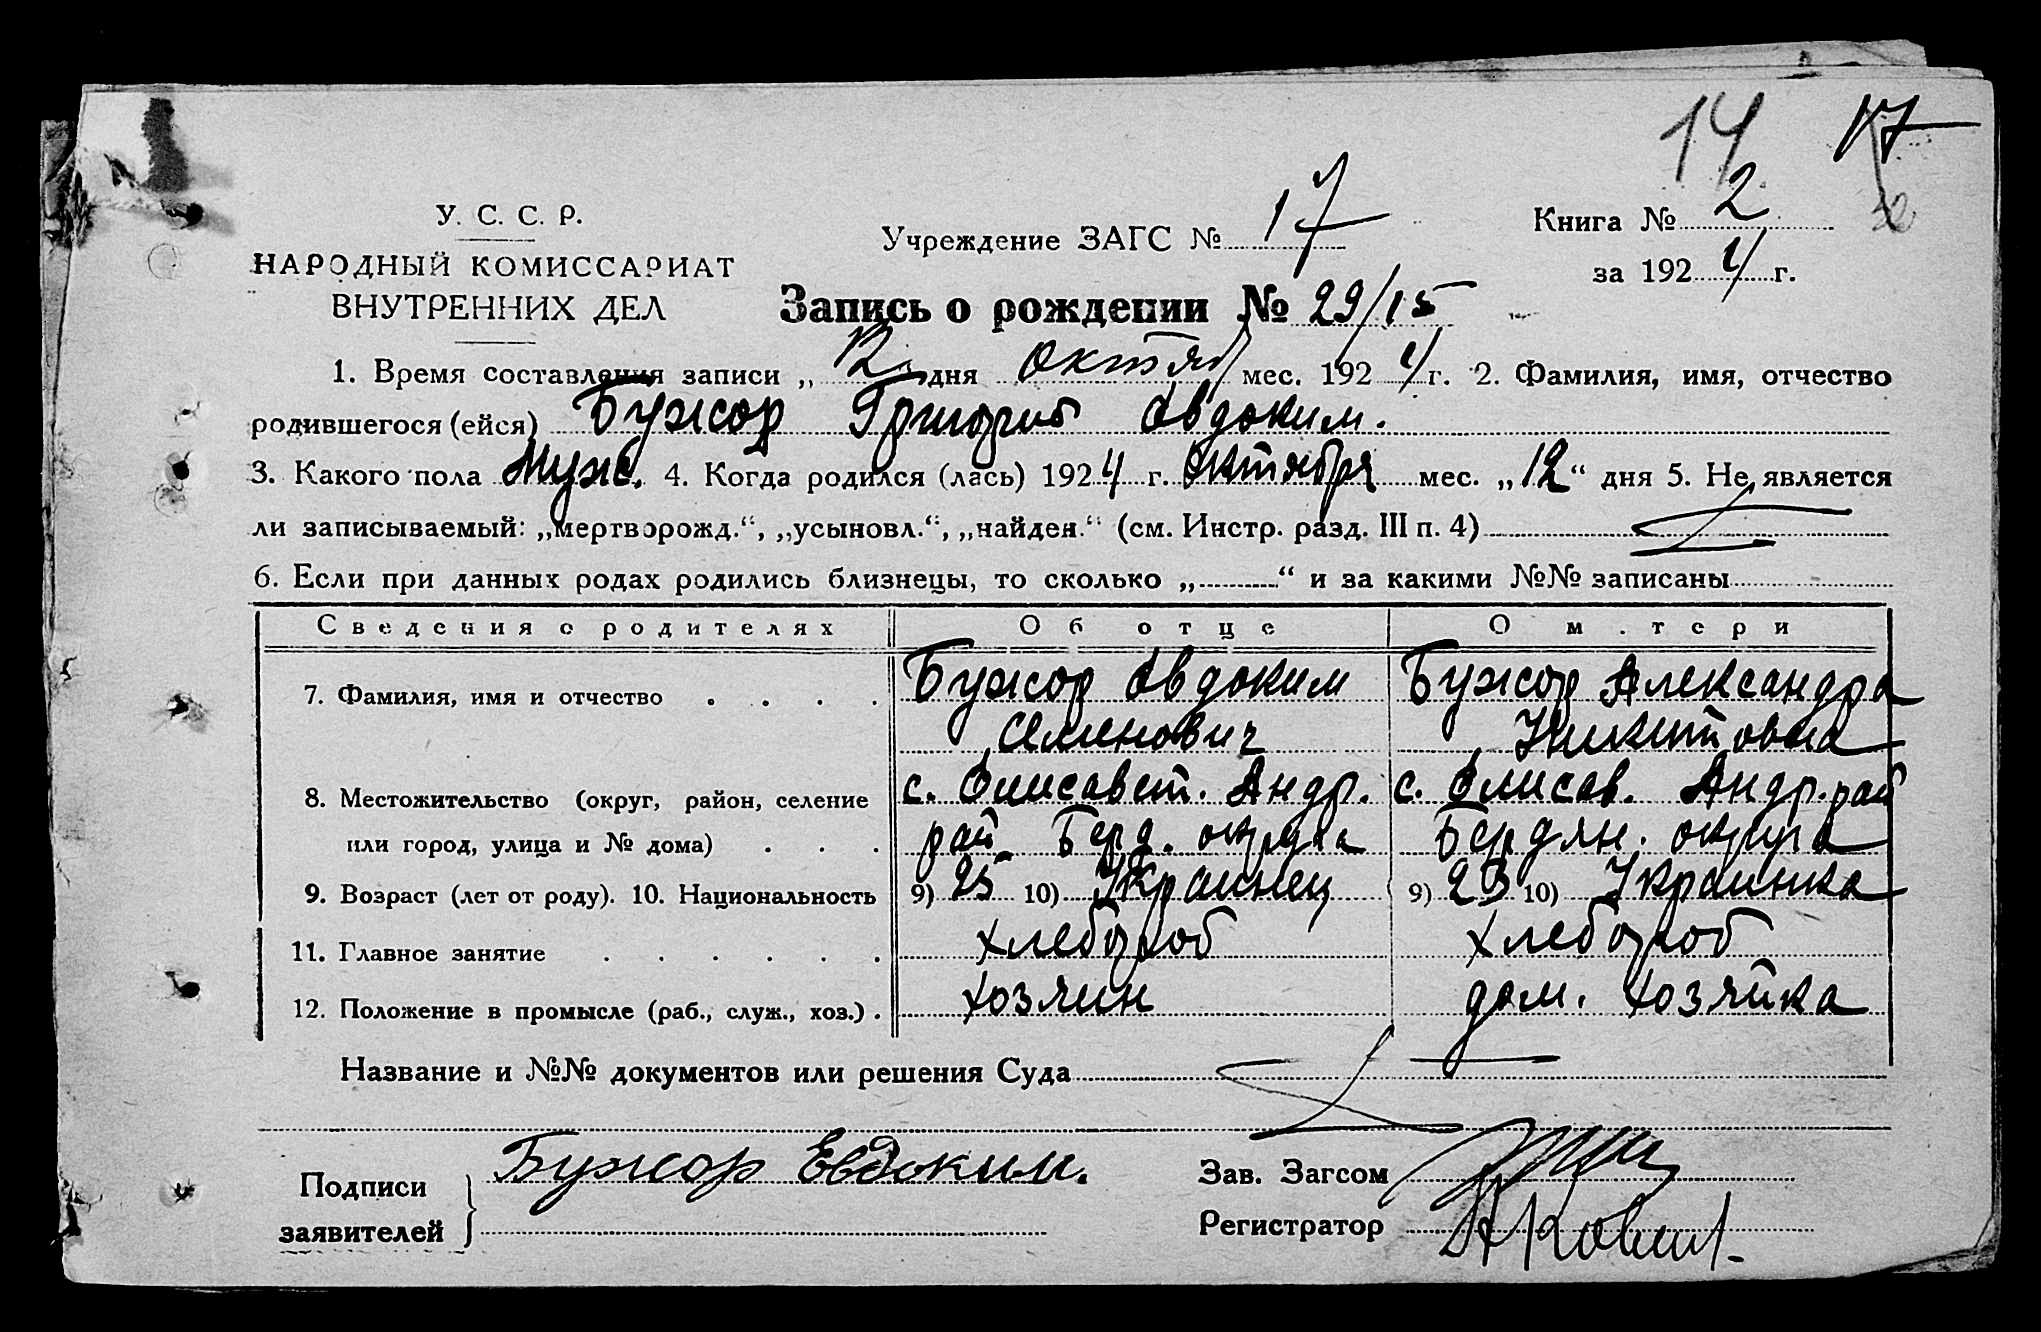 14 17
У. С. С. Р.
НАРОДНЫЙ КОМИССАРИАТ
ВНУТРЕННИХ ДЕЛ
Учреждение ЗАГС № 17
Книга № 2
за 1924 г.
Запись о рождении № 29/15
1. Время составления записи „ 12 дня октяб мес. 1924 г. 2. Фамилия, имя, отчество
родившегося (ейся) Бужор Григорий Овдоким.
3. Какого пола Муж. 4. Когда родился (лась) 1924 г. Октября мес. „12“ дня 5. Не является
ли записываемый: „мертворожд.“, „усыновл.“, „найден.“ (см. Инстр. разд. III п. 4)
6. Если при данных родах родились близнецы, то сколько „ “ и за какими №№ записаны
Сведения о родителях Об отце О м.тери
7. Фамилия, имя и отчество Бужор Овдоким Бужор Александра
Семенович Никитовна
8. Местожительство (округ, район, селение с. Олисавет. Андр. с. Олисав. Андр. рай
или город, улица и № дома) рай Берд. округа Бердян. округа
9. Возраст (лет от роду). 10. Национальность 9) 25 10) Украинец 9) 23 10) Украинка
11. Главное занятие хлебороб хлебороб
12. Положение в промысле (раб., служ., хоз.) хозяин дом. хозяйка
Название и №№ документов или решения Суда
Подписи
заявителей
Бужор Евдоким.
Зав. Загсом
Регистратор